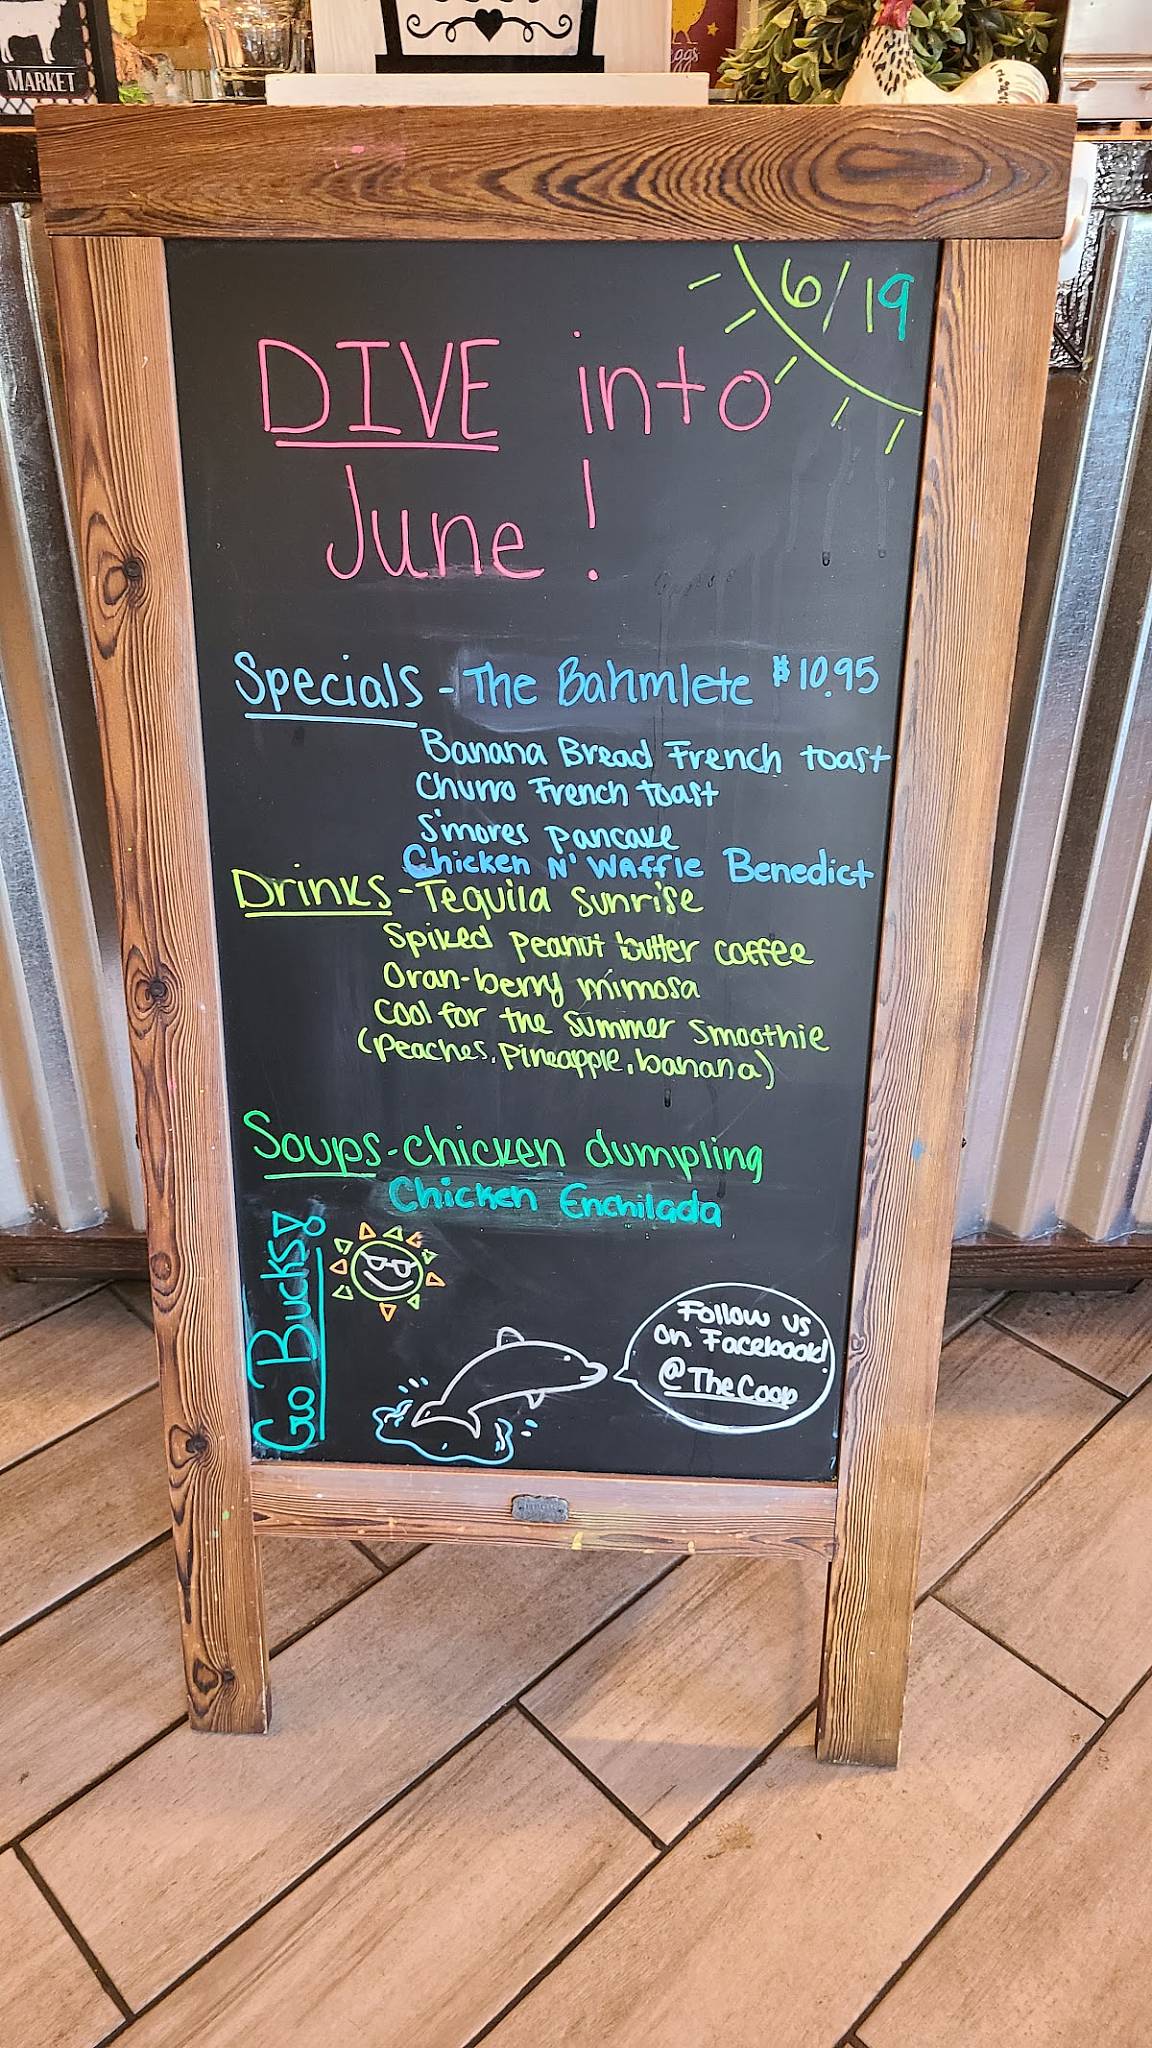 MARKET
eggs
6/19
DIVE into
June!
Specials - The Bahmlete $10.95
Banana Bread French toast
Churro French toast
S'mores pancake
Chicken N' Waffle Benedict
Drinks - Tequila sunrise
Spiked peanut butter coffee
Oran-berry mimosa
Cool for the summer smoothie
(peaches, pineapple, banana)
Soups - chicken dumpling
Chicken Enchilada
Go Bucks!
Follow us
on Facebook!
@TheCoop